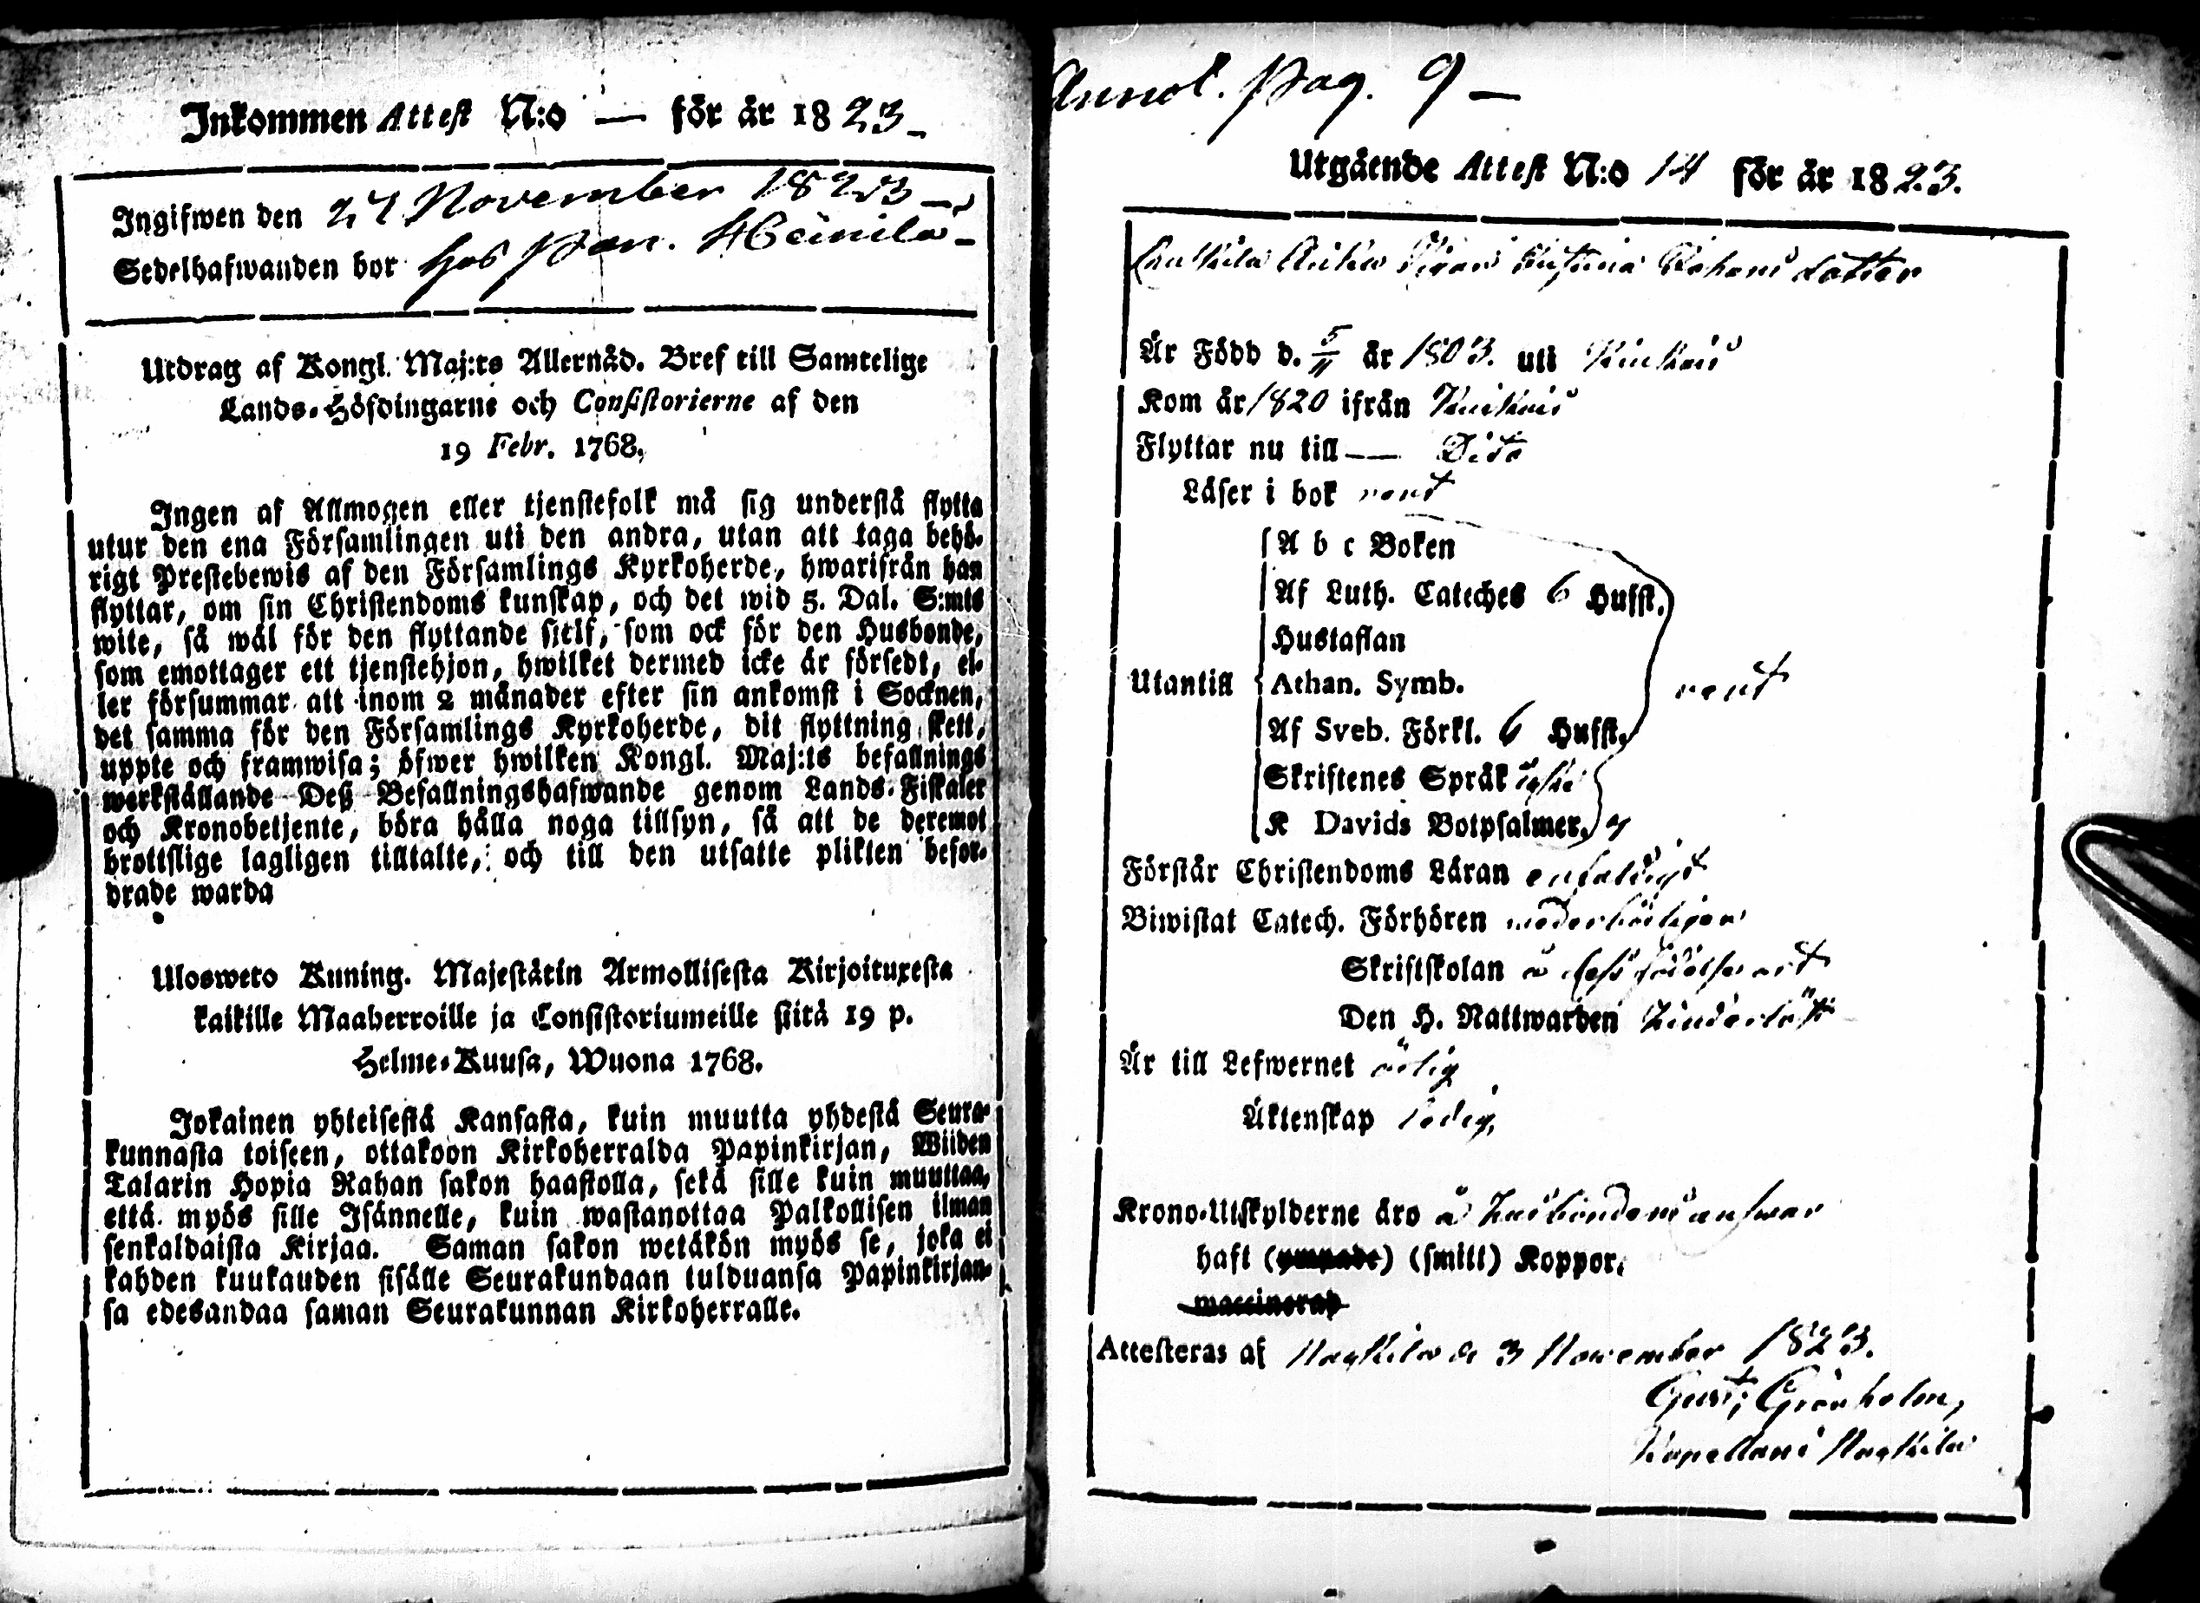 Inkommen Attest N:o — för år 1823
Ingifwen den 27 November 1823
Sedelhafwanden bor hos
Utdrag af Kongl. Maj:ts Allernåd. Bref till Samtelige
Lands-Höfdingarne och Consistorierne af den
19 Febr. 1768.
Ingen af Allmogen eller tjenstefolk må sig understå flytta
utur den ena Församlingen uti den andra, utan att taga behö-
rigt Prestebewis af den Församlings Kyrkoherde, hwarifrån han
flyttar, om sin Christendoms kunskap, och det wid 5. Dal. S:mts
wite, så wäl för den flyttande sielf, som ock för den Husbonde,
som emottager ett tjenstehjon, hwilket dermed icke är försedt, el-
ler försummar att inom 2 månader efter sin ankomst i Socknen,
det samma för den Församlings Kyrkoherde, dit flyttning skett,
uppte och framwisa; öfwer hwilken Kongl. Maj:ts befallnings
werkställande Deß Befallningshafwande genom Lands-Fiskaler
och Kronobetjente, böra hålla noga tillsyn, så att de deremot
brottslige lagligen tilltalte, och till den utsatte plikten befor-
drade warda
Ulosweto Kuning. Majestätin Armollisesta Kirjoituxesta
kaikille Maaherroille ja Consistoriumeille siitä 19 p.
Helme-Kuusa, Wuona 1768.
Jokainen yhteisestä Kansasta, kuin muutta yhdestä Seura-
kunnasta toiseen, ottakoon Kirkoherralda Papinkirjan, Wiiden
Talarin Hopia Rahan sakon haastolla, sekä sille kuin muuttaa,
että myös sille Isännelle, kuin wastanottaa Palkollisen ilman
senkaldaista Kirjaa. Saman sakon wetäkön myös se, joka ei
kahden kuukauden sisälle Seurakundaan tulduansa Papinkirjan-
sa edesandaa saman Seurakunnan Kirkoherralle.
Annot. Pag. 9 —
Utgående Attest N:o 14 för år 1823.
Piga Johans dotter
Är Född d. 5/11 år 1803. uti
Kom år 1820 ifrån
Flyttar nu till — Dito
Läser i bok rent
A b c Boken
Af Luth. Cateches 6 Hufst.
Hustaflan
Utantill Athan. Symb. rent
Af Sveb. Förkl. 6 Hufst.
Skriftenes Språk
K Davids Botpsalmer, 7
Förstår Christendoms Läran enfaldigt
Biwistat Catech. Förhören wederbörligen
Skriftskolan å dess födelseort
Den H. Nattwarden
Är till Lefwernet ärlig
Äktenskap ledig,
Krono-Utskylderne äro å husbondens answar
haft (ympade) (smitt) Koppor.
waccinerad
Attesteras af d 3 November 1823.
Gust: Grönholm,